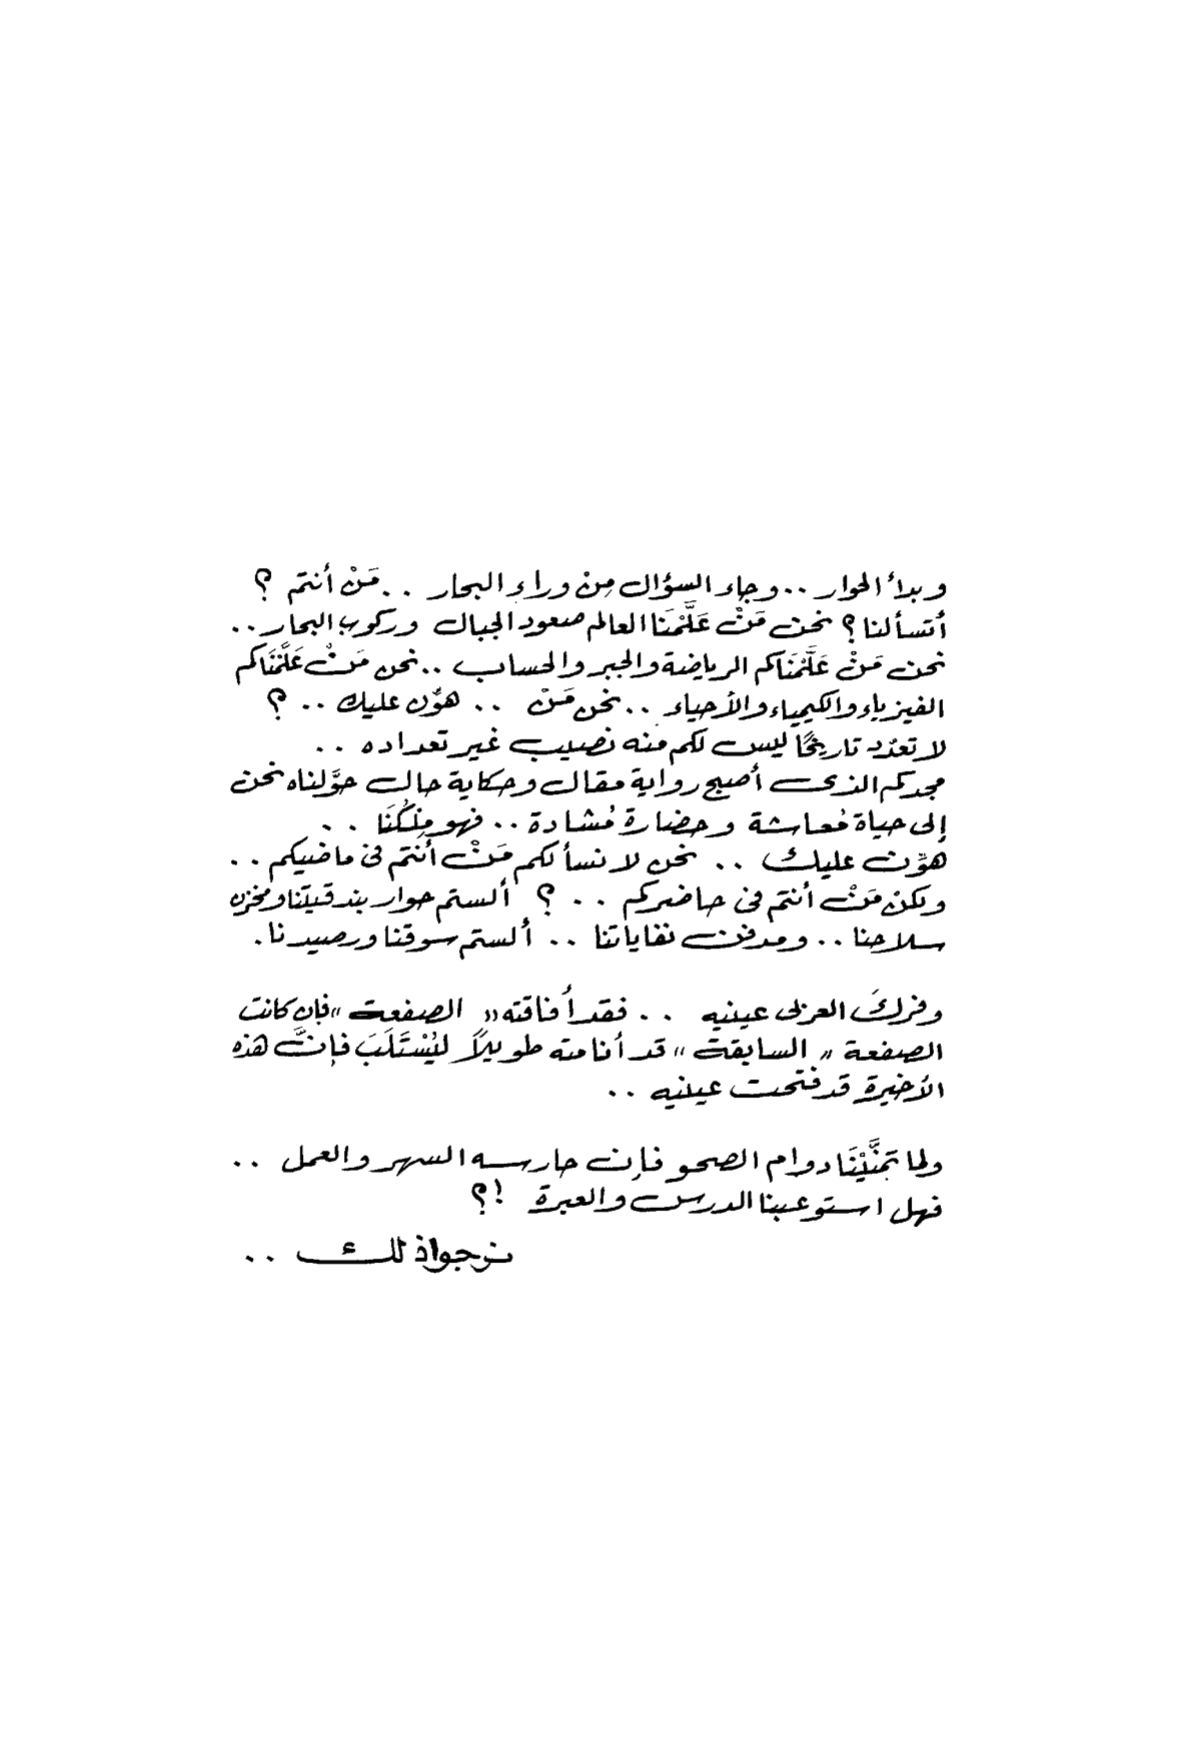 وبدأ الحوار .. وجاء السؤال مِنْ وراءِ البحار .. مَنْ أنتم ؟
أتسألنا ؟ نحن مَنْ عَلَّمْنَا العالم صعود الجبال وركوب البحار ..
نحن مَنْ عَلَّمْنَاكم الرياضة والجبر والحساب .. نحن مَنْ عَلَّمْنَاكم
الفيزياء والكيمياء والأحياء .. نحن مَنْ .. هوِّن عليك .. ؟
لا تعدِّد تاريخًا ليس لكم منه نصيب غير تعداده ..
مجدكم الذى أصبح رواية مقال وحكاية حال حوَّلناه نحن
إلى حياة مُعاشة وحضارة مُشادة .. فهو مِلْكُنَا ..
هوِّن عليك .. نحن لا نسألكم مَنْ أنتم فى ماضيكم ..
ولكن مَنْ أنتم فى حاضركم .. ؟ ألستم حوار بندقيتنا ومخزن
سلاحنا .. ومدفن نفاياتنا .. ألستم سوقنا ورصيدنا .
وفركَ العربى عينيه .. فقد أفاقته « الصفعة » فإن كانت
الصفعة « السابقة » قد أنامته طويلاً ليُسْتَلَبَ فإنَّ هذه
الأخيرة قد فتحت عينيه ..
ولما تمنَّيْنَا دوام الصحو فإن حارسه السهر والعمل ..
فهل استوعبنا الدرس والعبرة !؟
نرجو ذلك ..